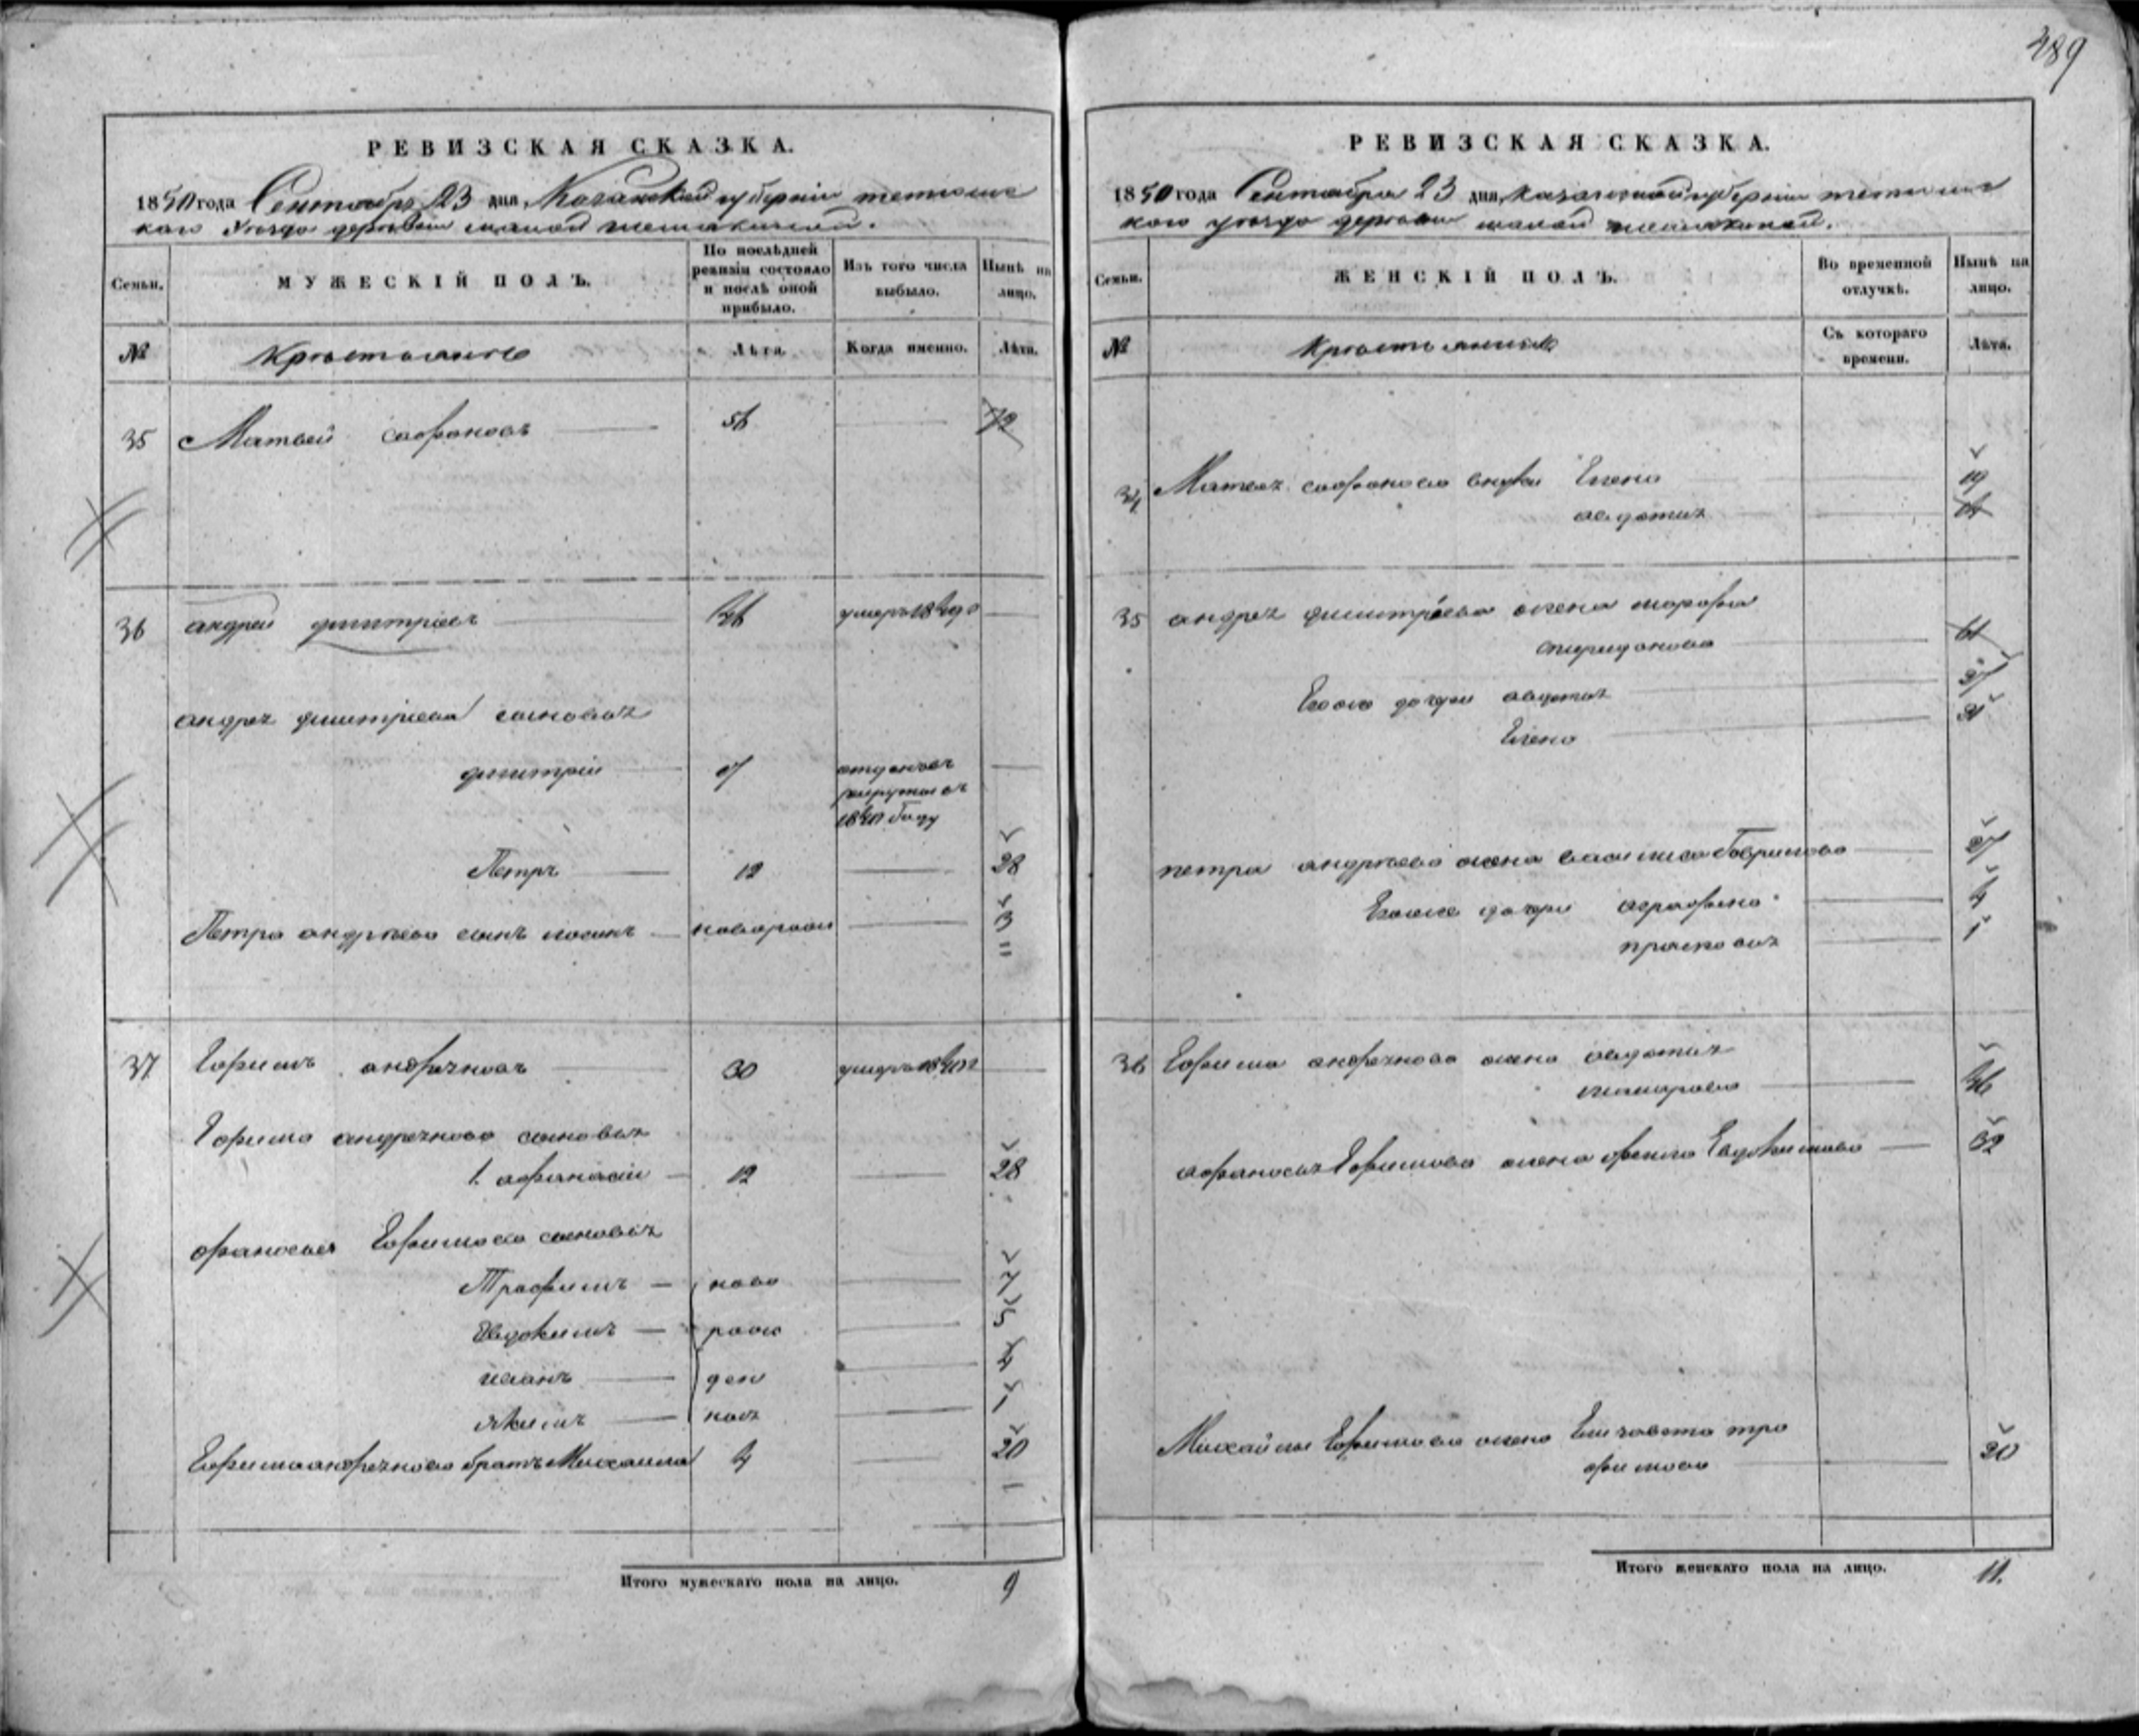 489
РЕВИЗСКАЯ СКАЗКА.
1850 года Сентября 23 дня, Казанской губернии тетюшс
каго уезда деревни малой
Семьи.
МУЖЕСКІЙ ПОЛЪ.
По послѣдней ревизіи состояло и послѣ оной прибыло.
Изъ того числа выбыло.
Нынѣ на лицо.
№
Крестьяне
Лѣта.
Когда именно.
Лѣта.
35 Матвей софроновъ 56 72
36 андрей дмитріевъ 46 умеръ 1849
андрея дмитріева сыновья
дмитрій отданъ въ
рекруты въ
1840 году
Петръ 12 28
Петра андреева сынъ новорож 3
37 Ефимъ андреяновъ 30 умеръ
Ефима андреянова сыновья
1. афанасій 12 28
афанасья Ефимова сыновья
Трофимъ ново 7
Евдокимъ рож 5
иванъ ден 4
якимъ ныя 1
Ефима андреянова братъ Михаила 4 20
Итого мужескаго пола на лицо. 9
РЕВИЗСКАЯ СКАЗКА.
1850 года Сентября 23 дня, казанской губернии тетюшс
каго уезда деревни малой
Семьи.
ЖЕНСКІЙ ПОЛЪ.
Во временной отлучкѣ.
Нынѣ на лицо.
№
Крестьянъ
Съ котораго времени.
Лѣта.
34 Матвея софронова внуки Елена 19
авдотья
35 андрея дмитріева жена марфа
спиридонова 61
Ево же дочери авдотья 27
Елена 21
петра андреева жена василиса Гаврилова 27
Ево же дочери аграфена 4
прасковья 1
36 Ефима андреянова жена авдотья
макарова 46
афанасья Ефимова жена Евдокимова 32
Михайлы Ефимова жена Елизавета тро
фимова 20
Итого женскаго пола на лицо. 11.